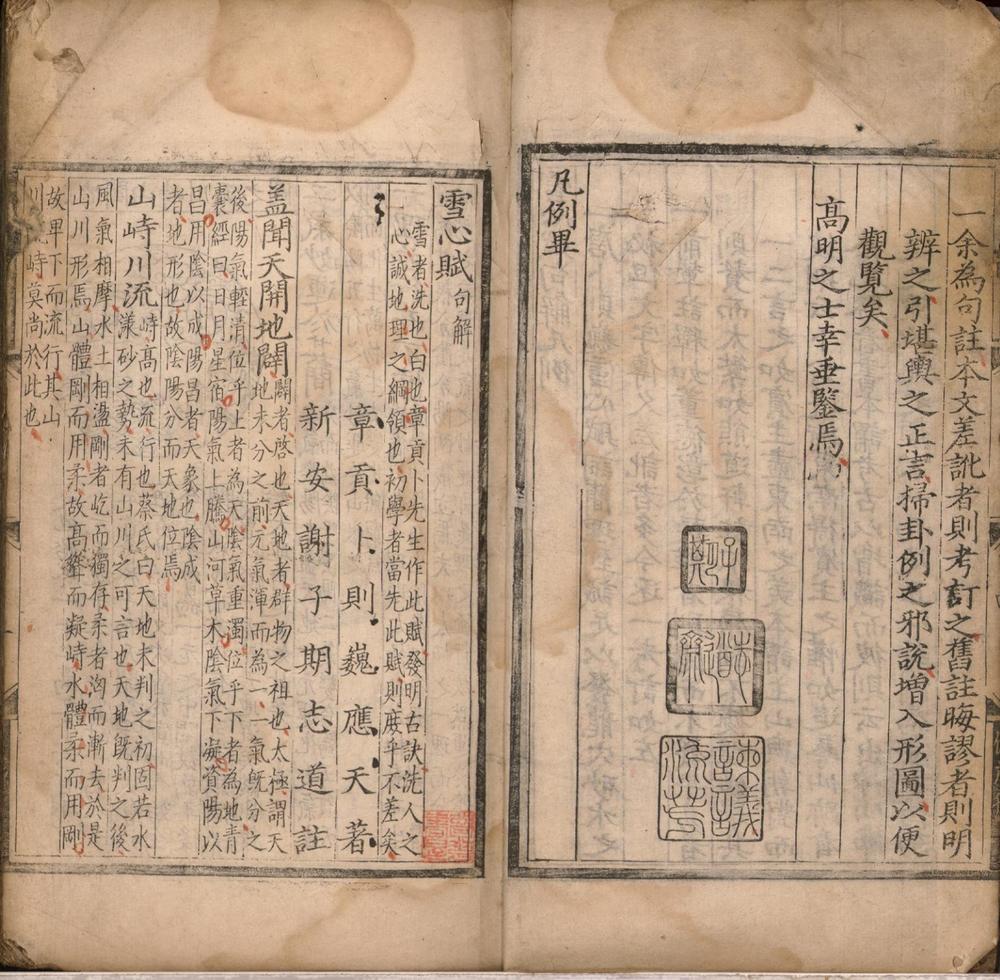 一余為句註本文差訛者則考訂之舊註晦謬者則明
辨之引堪輿之正言掃卦例之邪說增入形圖以便
觀覽矣
高明之士幸垂鑒焉
凡例畢
子期
諫議流芳
雪心賦句解
雪者洗也白也章貢卜先生作此賦發明古訣洗人之
心誠地理之綱領也初學者當先此賦則庶乎不差矣
章貢卜則巍應天著
新安謝子期志道註
盖聞天開地闢
闢者啓也天地者群物之祖也太極謂天
地未分之前元氣渾而為一一氣旣分之
後陽氣輕清位乎上者為天陰氣重濁位乎下者為地青
囊經曰日月星宿陽氣上騰山河草木陰氣下凝資陽以
昌用陰以成陽昌者天象也陰成
者地形也故陰陽分而天地位焉
山峙川流
峙高也流行也蔡氏曰天地未判之初固若水
漾砂之勢未有山川之可言也天地旣判之後
風氣相摩水土相盪剛者屹而獨存柔者洶而漸去於是
山川形焉山體剛而用柔故高聳而凝峙水體柔而用剛
故卑下而流行其山
川流峙莫尚於此也